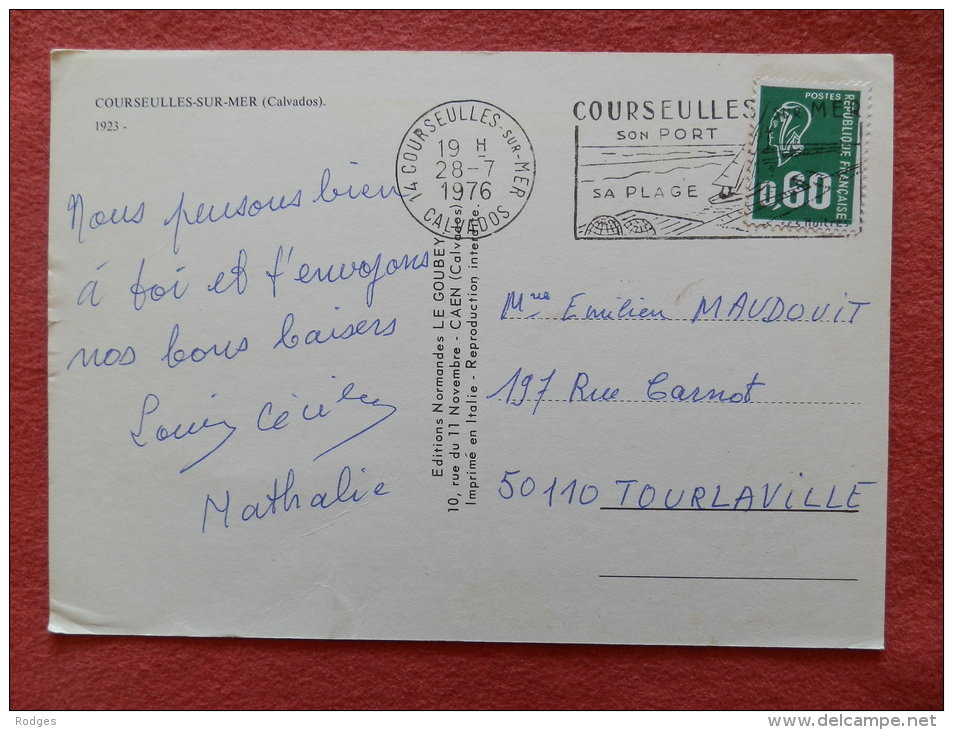 COURSEULLES-SUR-MER (Calvados).
1923 -
Nous pensons bien
à toi et t'envoyons
nos bons baisers
Louis Cécile
Nathalie
14 COURSEULLES-SUR-MER
19 H
28-7
1976
CALVADOS
COURSEULLES SUR MER
SON PORT
SA PLAGE
POSTES
RÉPUBLIQUE FRANÇAISE
0,60
Editions Normandes LE GOUBEY
10, rue du 11 Novembre - CAEN (Calvados)
Imprimé en Italie - Reproduction interdite.
Mme Emilien MAUDOUIT
197 Rue Carnot
50110 TOURLAVILLE
Rodges
www.delcampe.net